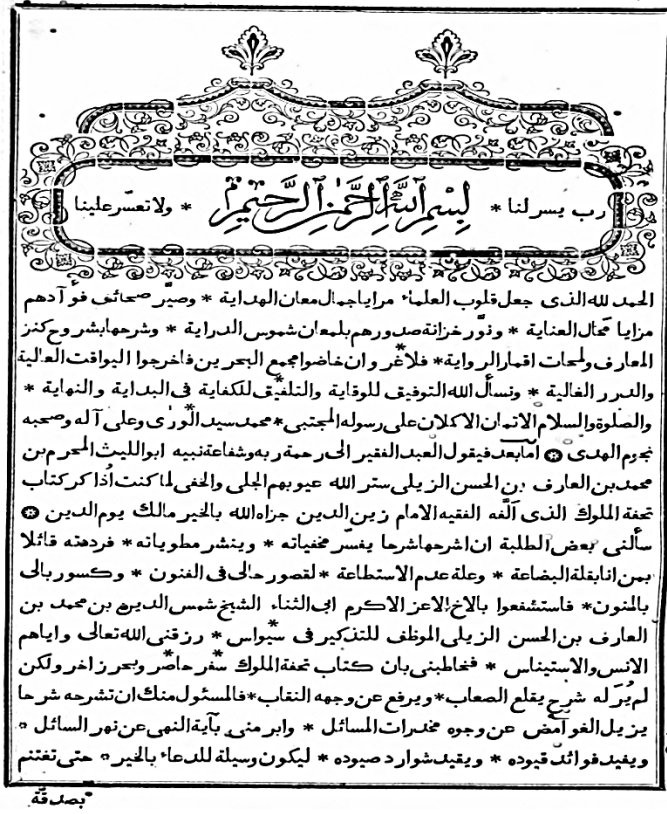 رب يسر لنا * بِسْمِ اللّٰهِ الرَّحْمٰنِ الرَّحِيمِ * ولا تعسّر علينا
الحمد لله الذى جعل قلوب العلماء مرايا جمال معان الهداية * وصيّر صحائف فوآدهم
مزايا مجال العناية * ونوّر خزانة صدورهم بلمعان شموس الدراية * وشرحها بشروح كنز
المعارف ولمحات اقمار الرواية * فلا غرو ان خاضوا مجمع البحرين فاخرجوا اليواقت العالية
والدرر الغالية * ونسأل الله التوفيق للوقاية والتلفيق للكفاية فى البداية والنهاية *
والصلوة والسلام الاتمان الاكملان على رسوله المجتبى * محمد سيد الورى وعلى آله وصحبه
نجوم الهدى ۞ اما بعد فيقول العبد الفقير الى رحمة ربه وشفاعة نبيه ابوالليث المحرم بن
محمد بن العارف بن الحسن الزيلى ستر الله عيوبهم الجلى والخفى لما كنت اذاكر كتاب
تحفة الملوك الذى آلّفه الفقيه الامام زين الدين جزاه الله بالخير مالك يوم الدين ۞
سألنى بعض الطلبة ان اشرحها شرحا يفسّر مخفياته * وينشر مطوياته * فردهته قائلا
بمن انا بقلة البضاعة * وعلة عدم الاستطاعة * لقصور حالى فى الفنون * وكسور بالى
بالمنون * فاستشفعوا بالاخ الاعز الاكرم ابى الثناء الشيخ شمس الدين بن محمد بن
العارف بن الحسن الزيلى الموظف للتذكير فى سيواس * رزقنى الله تعالى واياهم
الانس والاستيناس * فخاطبنى بان كتاب تحفة الملوك سفر حاضر وبحر زاخر ولكن
لم يُرَ له شرح يقلع الصعاب * ويرفع عن وجهه النقاب * فالمسئول منك ان تشرحه شرحا
يزيل الغوامض عن وجوه مخدرات المسائل * وابرمنى بآية النهى عن نهر السائل *
ويفيد فوائد قيوده * ويقيد شوارد صيوده * ليكون وسيلة للدعاء بالخير * حتى تغتنم
بصدقة